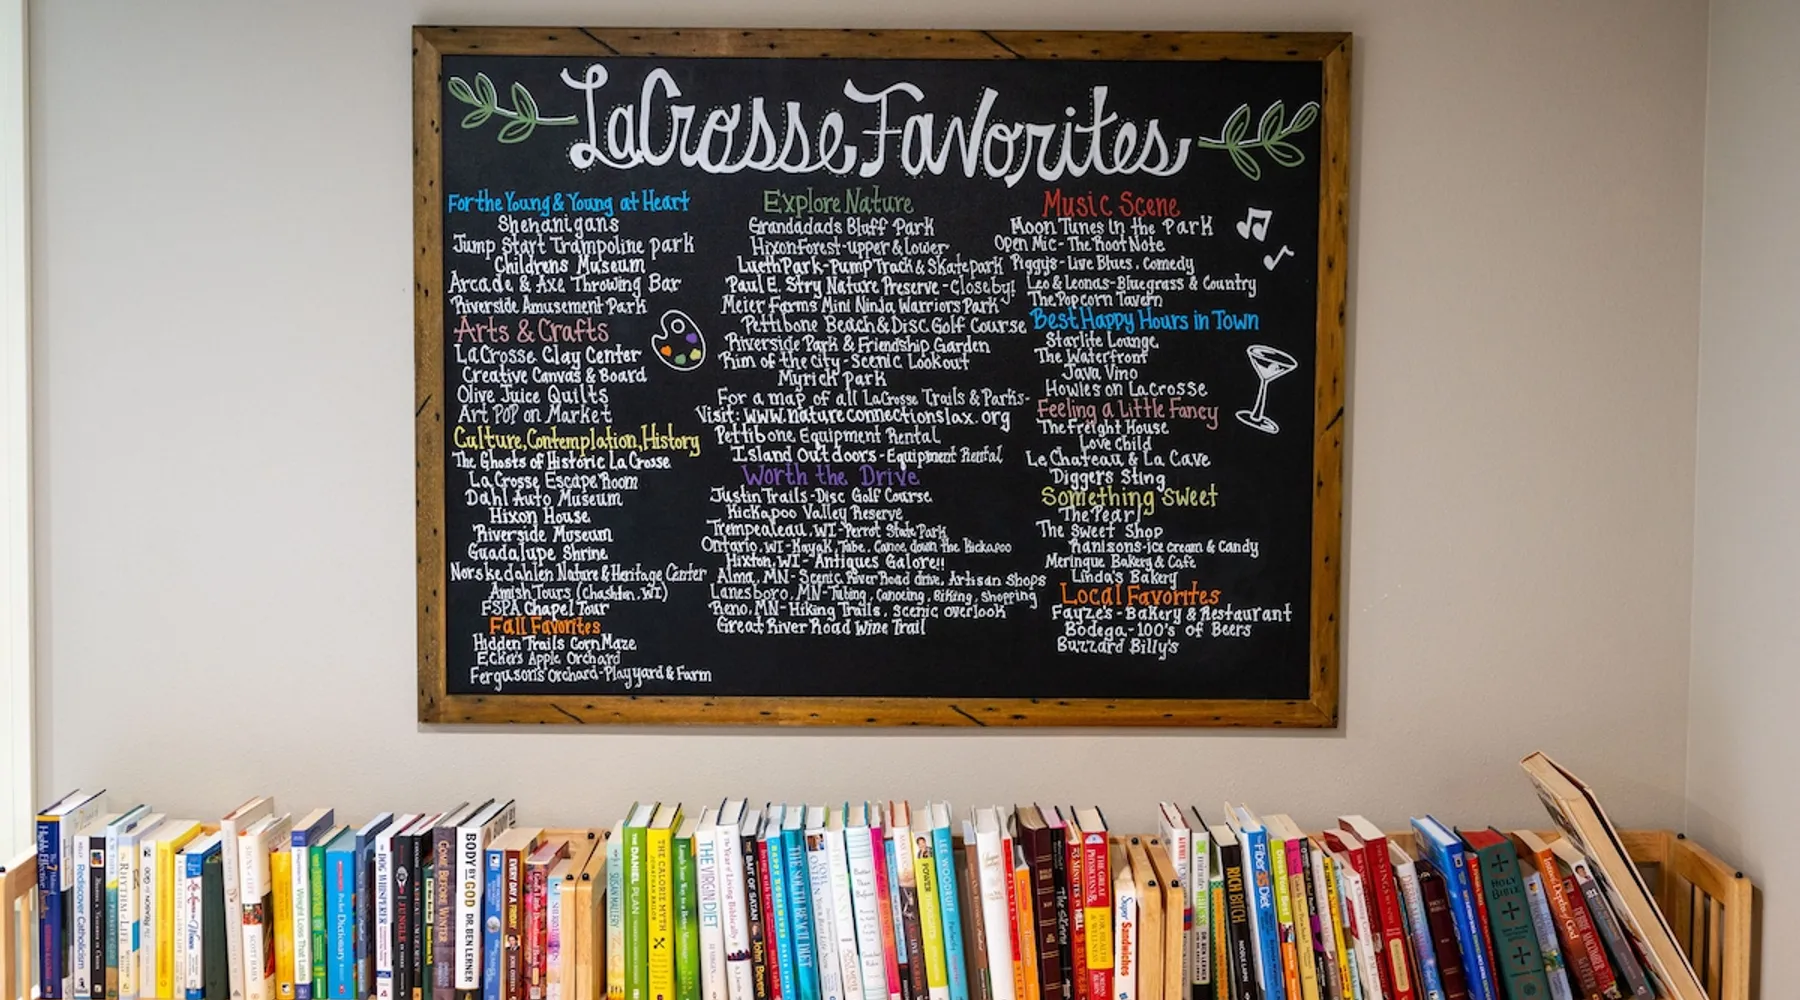 LaCrosse Favorites
For the Young & Young at Heart
Shenanigans
Jump Start Trampoline park
Childrens Museum
Arcade & Axe Throwing Bar
Riverside Amusement Park
Arts & Crafts
LaCrosse Clay Center
Creative Canvas & Board
Olive Juice Quilts
Art POP on Market
Culture, Contemplation, History
The Ghosts of Historic La Crosse
LaCrosse Escape Room
Dahl Auto Museum
Hixon House
Riverside Museum
Guadalupe Shrine
Norskedahlen Nature & Heritage Center
Amish Tours (Chashton, WI)
FSPA Chapel Tour
Fall Favorites
Hidden Trails Corn Maze
Ecker's Apple Orchard
Ferguson's Orchard-Playyard & Farm
Explore Nature
Grandadads Bluff Park
Hixon Forest-upper & lower
Lueth Park-Pump Track & Skatepark
Paul E. Stry Nature Preserve-Closeby!
Meier Farms Mini Ninja Warriors Park
Pettibone Beach & Disc Golf Course
Riverside Park & Friendship Garden
Rim of the City-Scenic Lookout
Myrick Park
For a map of all LaCrosse Trails & Parks-
Visit: www.natureconnectionslax.org
Pettibone Equipment Rental
Island Outdoors-Equipment Rental
Worth the Drive
Justin Trails-Disc Golf Course
Kickapoo Valley Reserve
Trempealeau, WI-Perrot State Park
Ontario, WI-Kayak, Tube, Canoe down the Kickapoo
Hixton, WI-Antiques Galore!!
Alma, MN-Scenic River Road drive, Artisan Shops
Lanesboro, MN-Tubing, Canoeing, Biking, Shopping
Reno, MN-Hiking Trails, scenic overlook
Great River Road Wine Trail
Music Scene
Moon Tunes in the Park
Open Mic-The Root Note
Piggy's-Live Blues, Comedy
Leo & Leonas-Bluegrass & Country
The Popcorn Tavern
Best Happy Hours in Town
Starlite Lounge
The Waterfront
Java Vino
Howies on LaCrosse
Feeling a Little Fancy
The Freight House
Love Child
Le Chateau & La Cave
Diggers Sting
Something Sweet
The Pearl
The Sweet Shop
Ranisons-ice cream & Candy
Meringue Bakery & Cafe
Linda's Bakery
Local Favorites
Fayze's-Bakery & Restaurant
Bodega-100's of Beers
Buzzard Billy's
Rediscover Catholicism
RHYTHM of LIFE
SCOTT HAHN
DOG WHISPERER
JUNGLE
GONE BEFORE WINTER
BODY BY GOD DR. BEN LERNER
EVERY DAY A FRIDAY
SUSAN MALLERY
THE DANIEL PLAN
THE CALORIE MYTH
THE VIRGIN DIET
THE BAIT OF SATAN John Bevere
THE SOUTH BEACH DIET
The Shack
Super Sandwiches
RICH BITCH
HOLY BIBLE